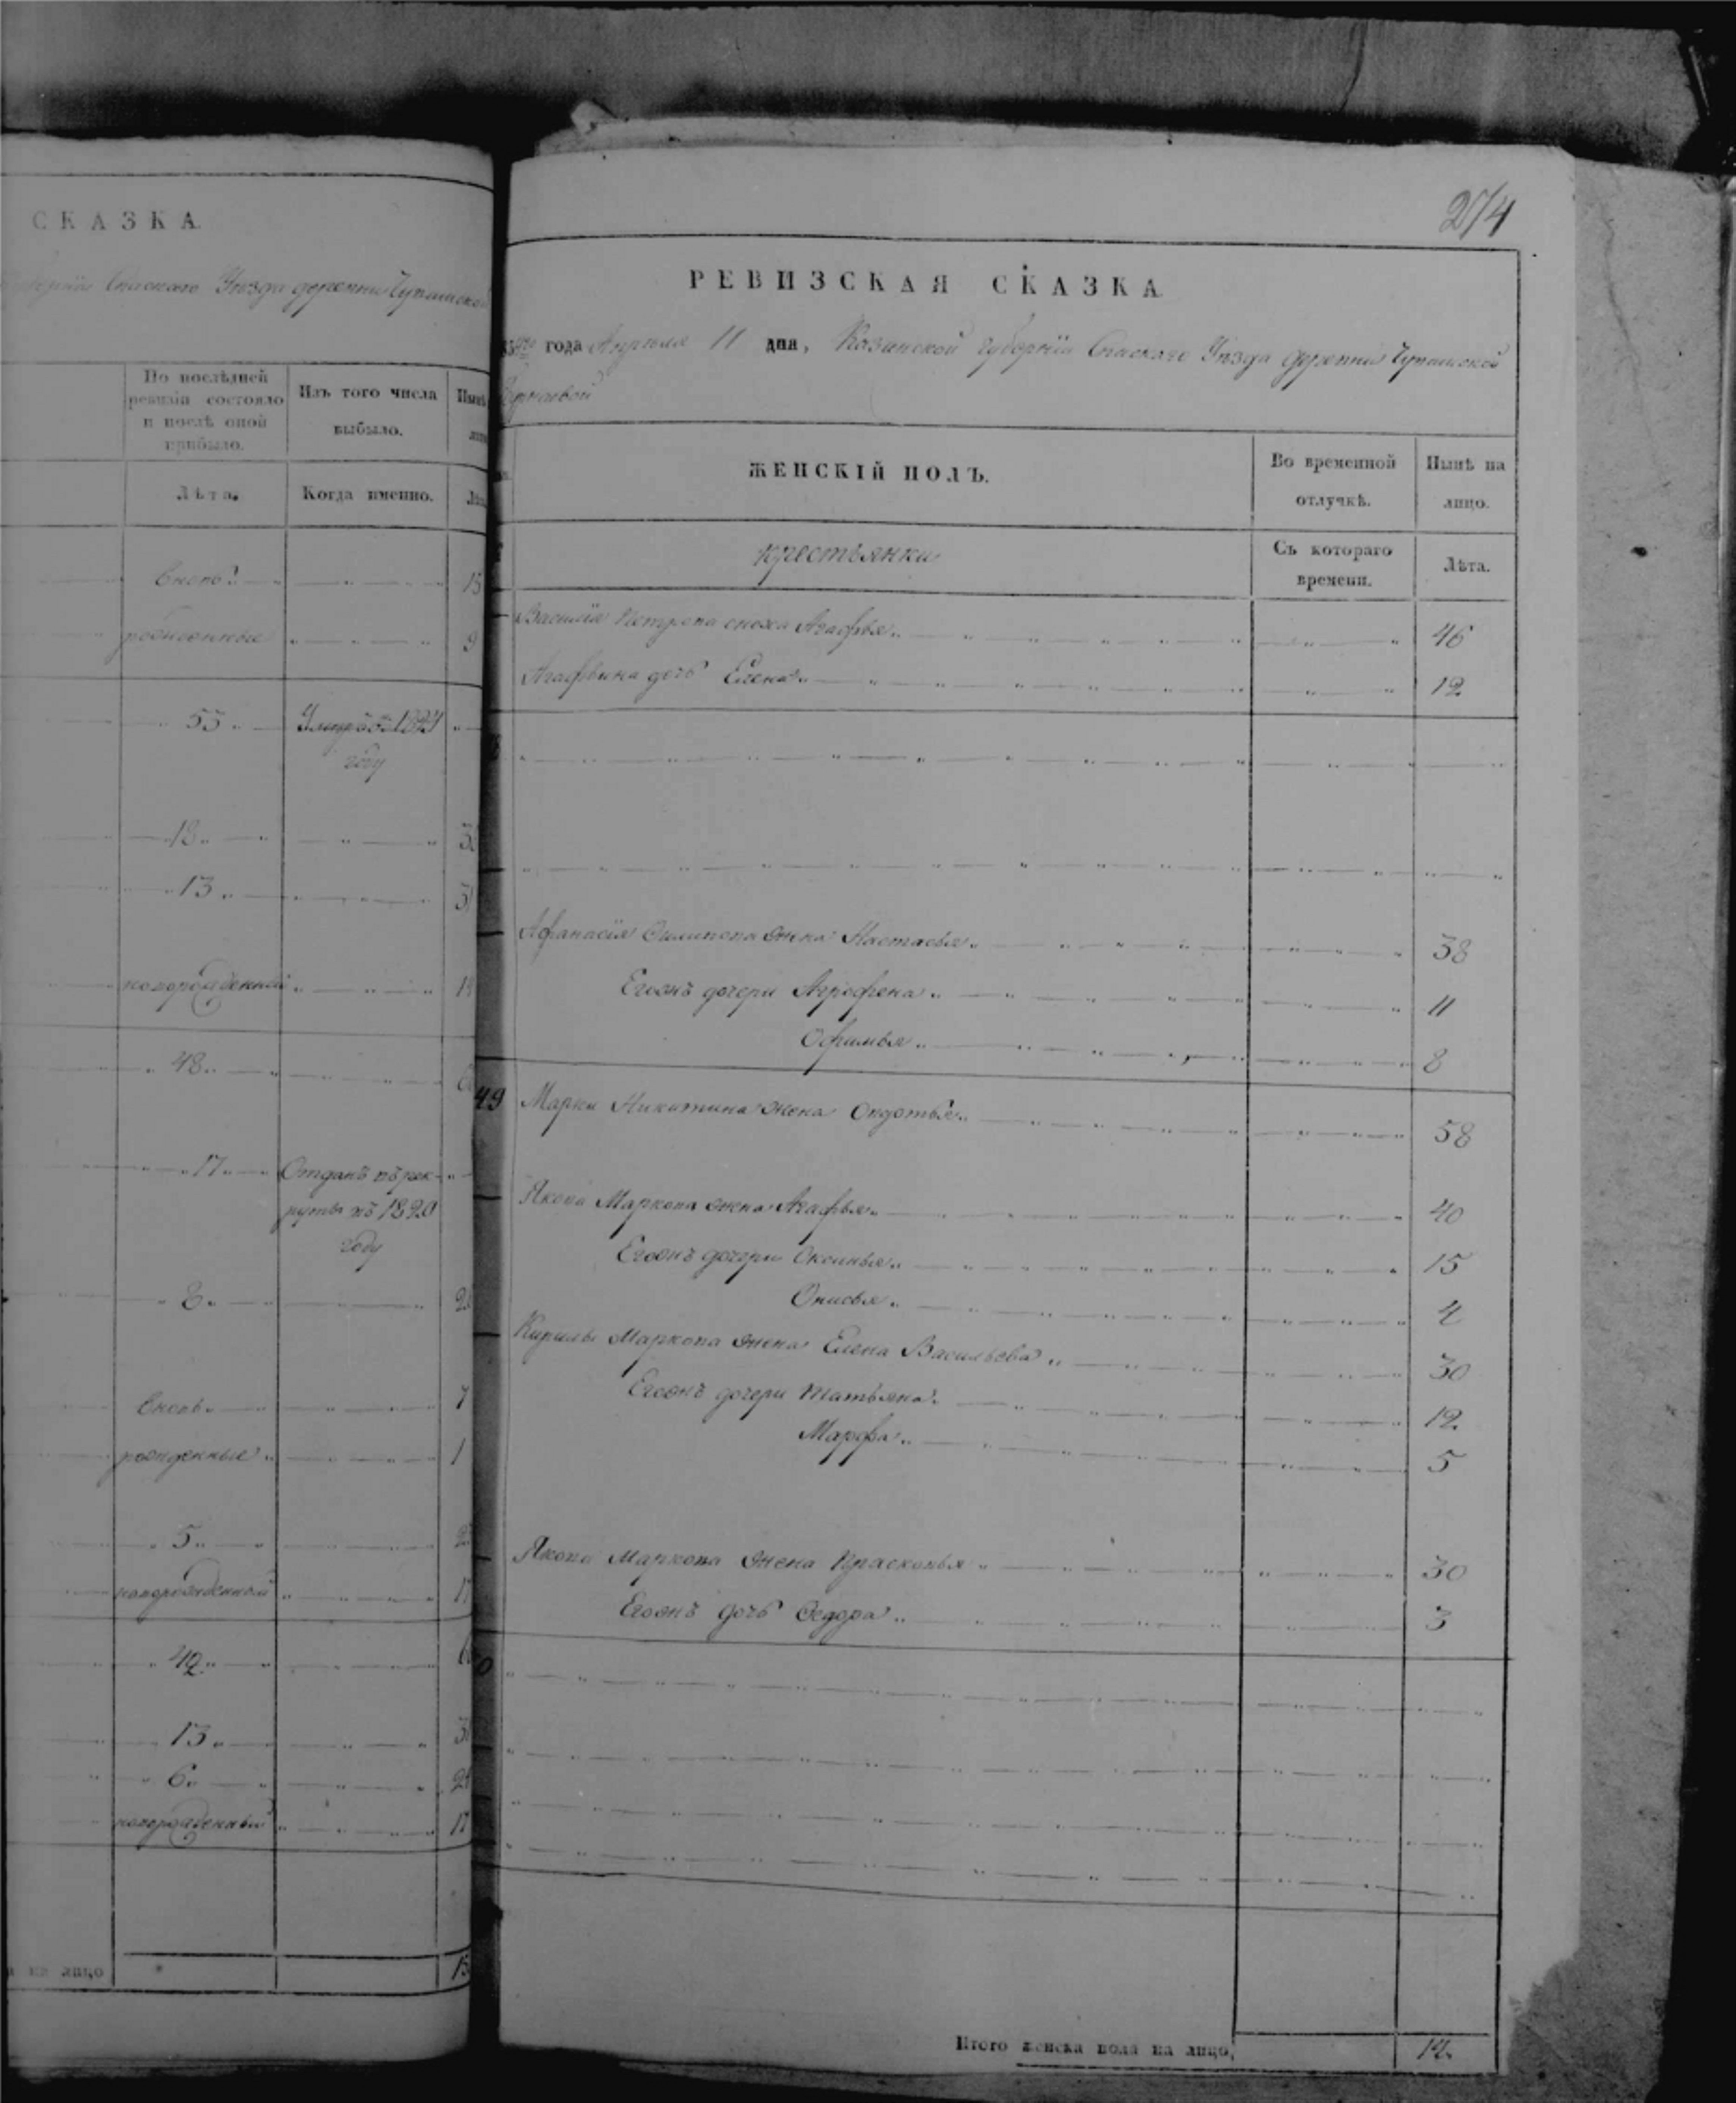 СКАЗКА.
Спаскаго Уѣзда деревни Чувашской
По послѣдней
ревизіи состояло
и послѣ оной
прибыло.
Изъ того числа
выбыло.
Лѣта.
Когда именно.
вновь
рожденные
9
55
Умре въ 1821
году
18
13
новорожденный
48
17
Отданъ въ рек-
руты въ 1820
году
8
вновь
7
рожденные
1
5
новорожденной
42
13
6
новорожденный
на лицо
274
РЕВИЗСКАЯ СКАЗКА
года Апреля 11 дня, Казанской губерніи Спаскаго Уѣзда деревни Чувашской
ЖЕНСКІЙ ПОЛЪ.
Во временной
отлучкѣ.
Нынѣ на
лицо.
крестьянки
Съ котораго
времени.
Лѣта.
Василія Петрова сноха Агафья 46
Агафьина дочь Елена 12
Афанасія Филипова жена Настасья 38
Егожъ дочери Агрофена 11
Офимья 8
49 Марки Никитина жена Овдотья 58
Якова Маркова жена Агафья 40
Егожъ дочери Оксинья 15
Онисья 4
Кирилы Маркова жена Елена Васильева 30
Егожъ дочери Татьяна 12
Марфа 5
Якова Маркова жена Прасковья 30
Егожъ дочь Федора 3
Итого женска пола на лицо, 14.